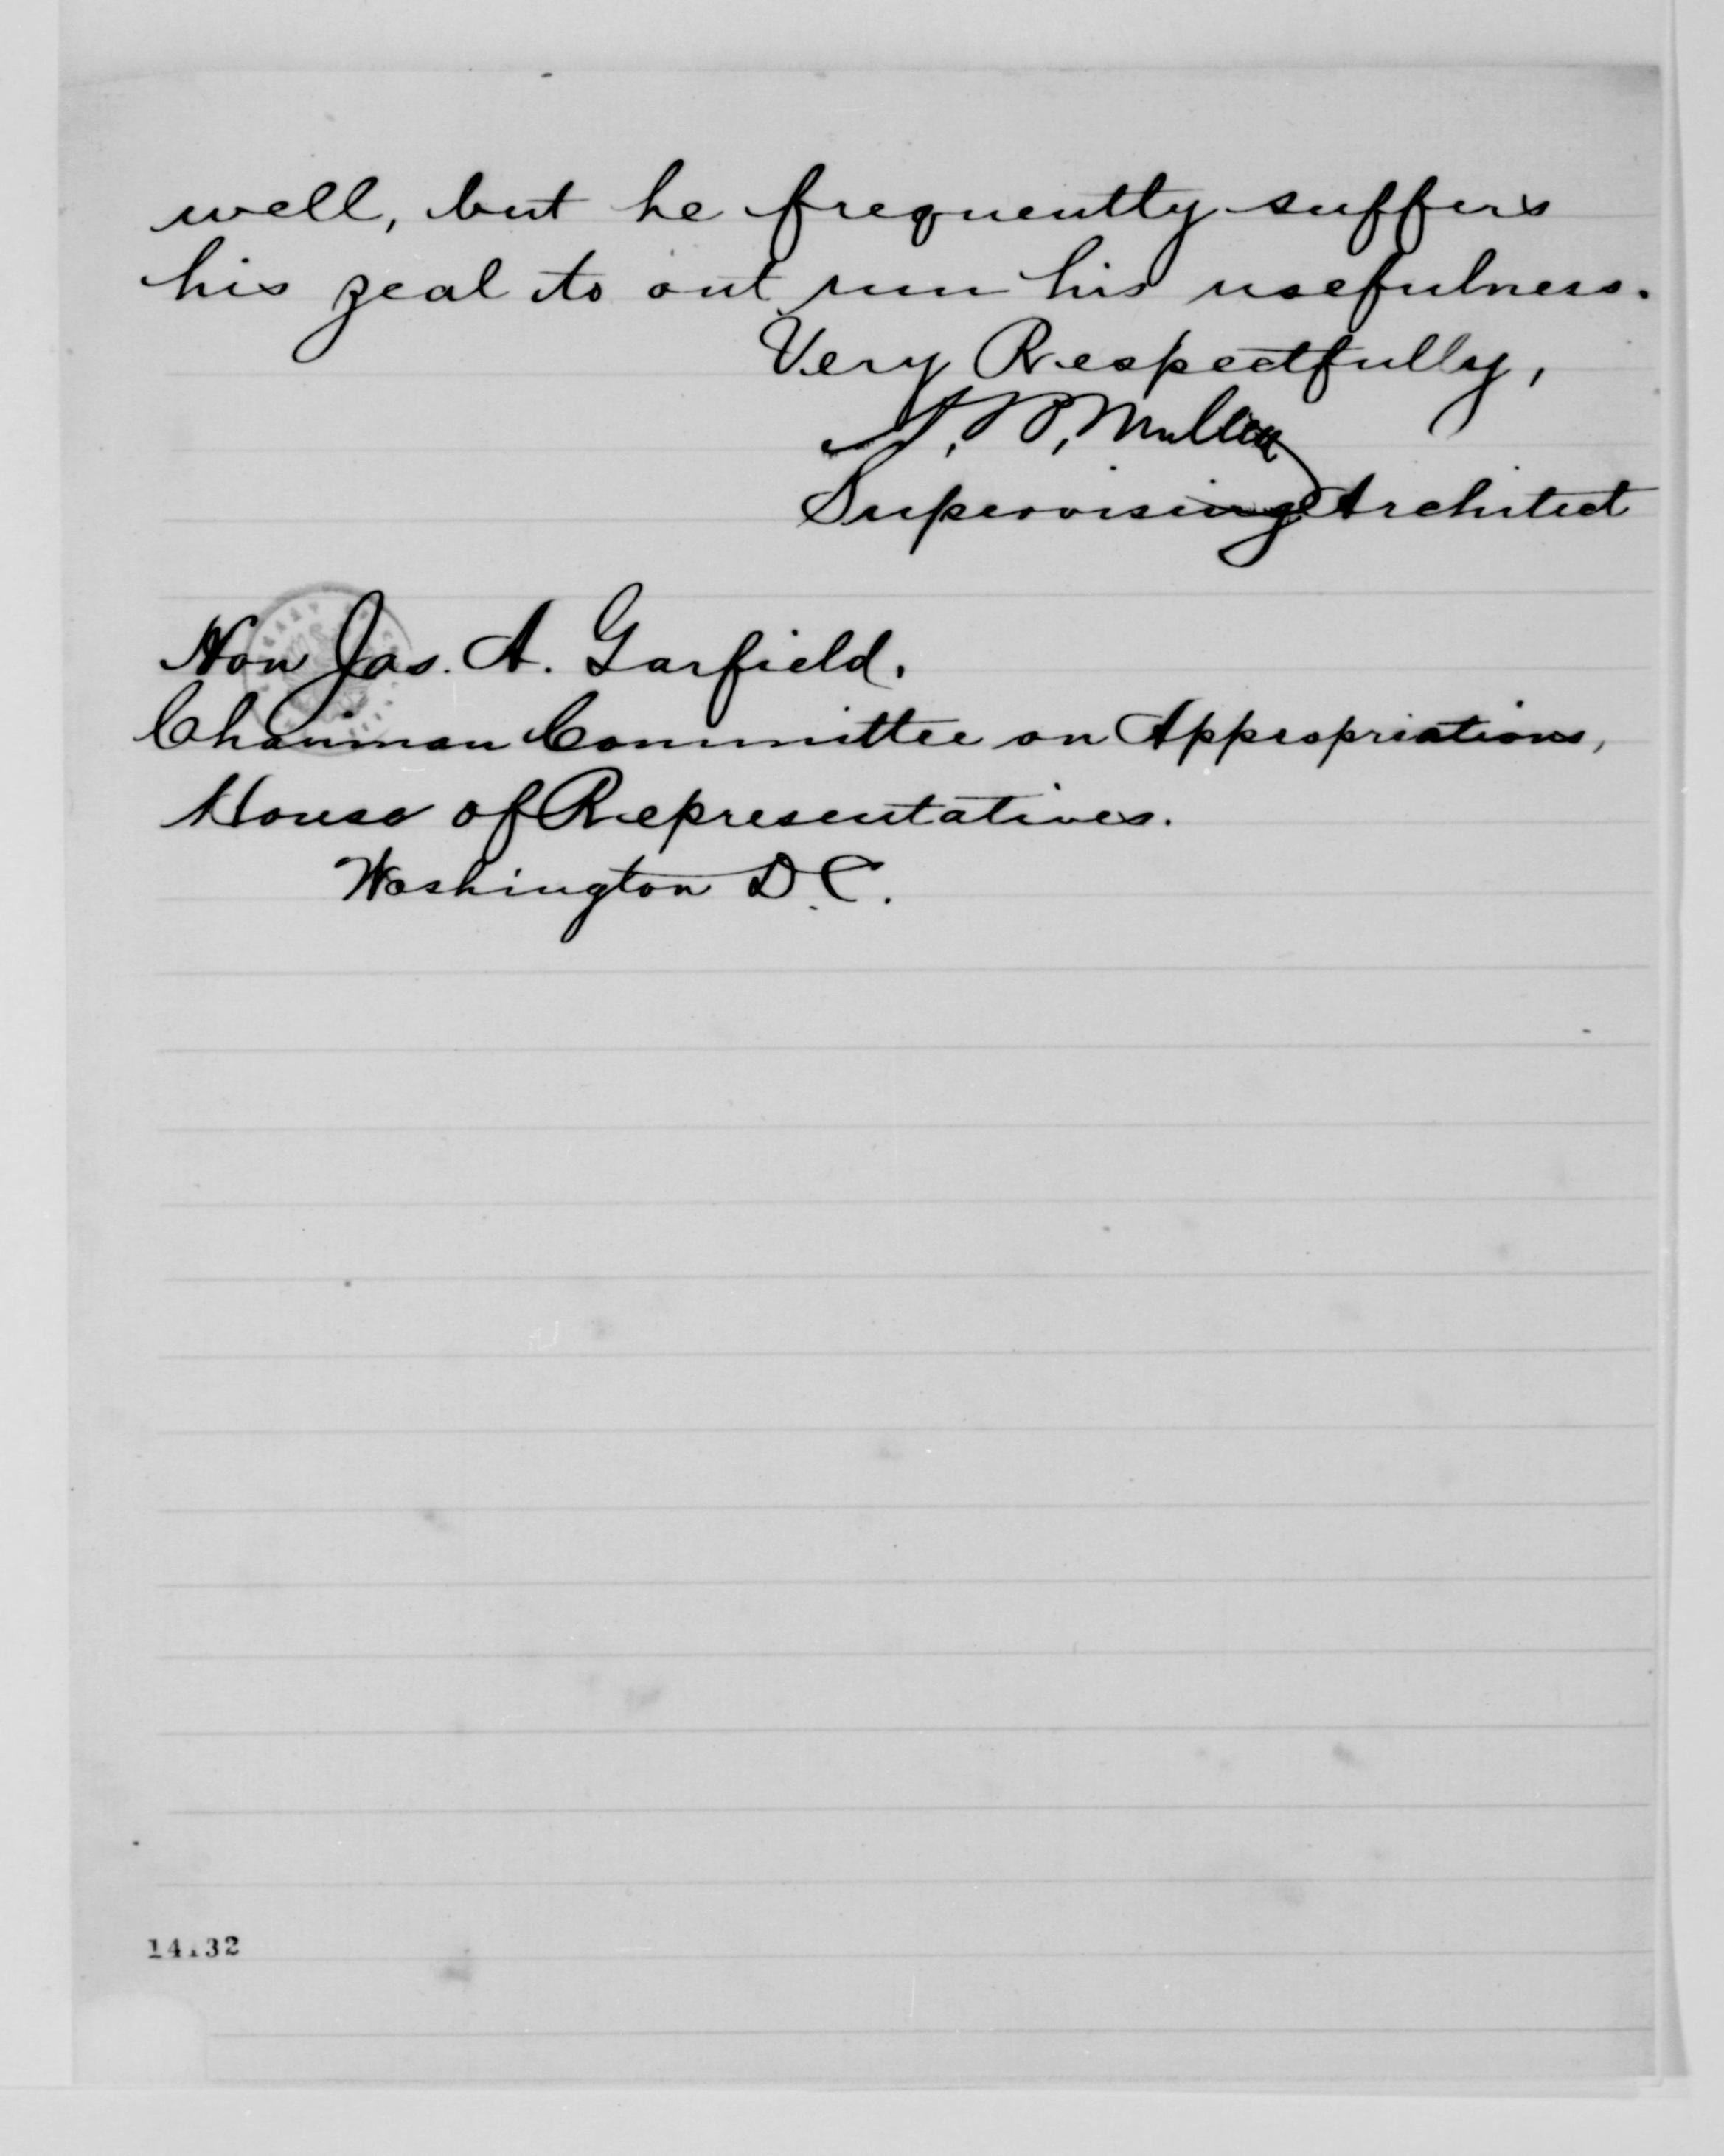 well, but he frequently suffers
his zeal to out run his usefulness.
Very Respectfully,
A. B. Mullett
Supervising Architect
Hon Jas. A. Garfield.
Chairman Committee on Appropriations,
House of Representatives.
Washington D.C.
14132